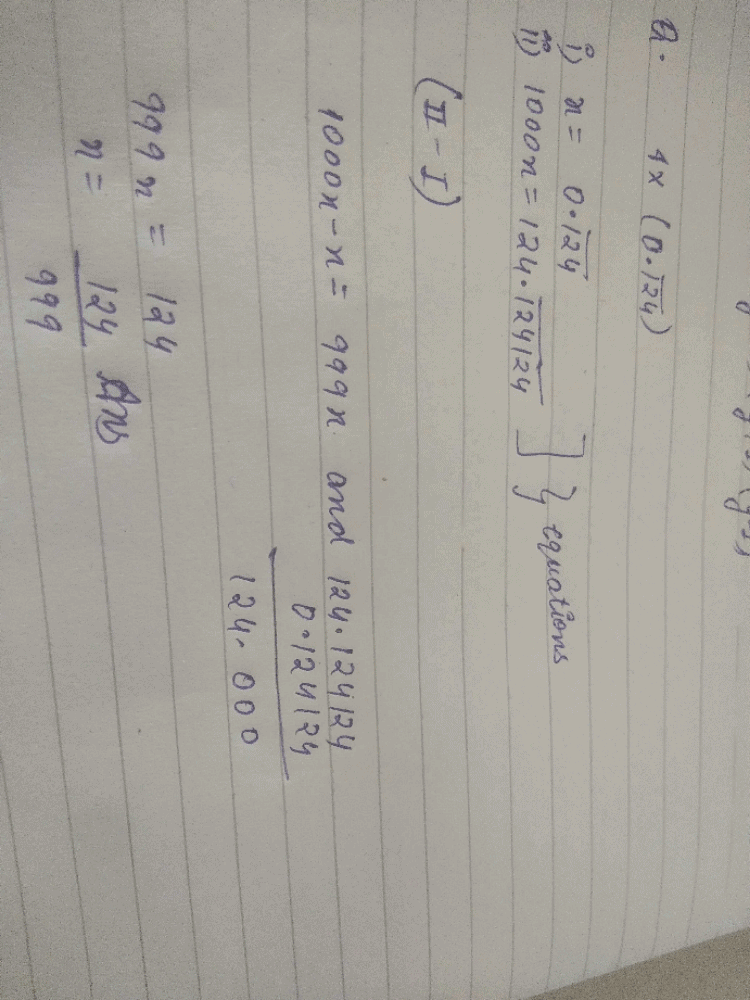 Q. 1 x (0.1̅2̅4̅)
i) x = 0.1̅2̅4̅
ii) 1000x = 124.1̅2̅4̅1̅2̅4̅ ] } equations
(II - I)
1000x - x = 999x and 124.124124
0.124124
124.000
999x = 124
x = 124 Ans
999